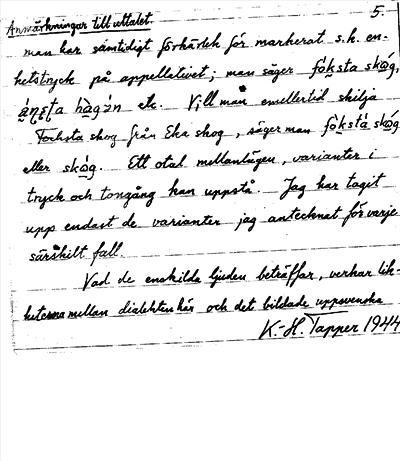 5.
Anmärkningar till uttalet.
man har samtidigt förkärlek för markerat s.k. en-
hetstryck på appellativet; man säger fóksta skóg,
ängsta hàgan etc. Vill man emellertid skilja
Focksta skog från Eka skog, säger man fóksta skóg
eller skóg. Ett otal mellanlägen, varianter i
tryck och tongång kan uppstå. Jag har tagit
upp endast de varianter jag antecknat för varje
särskilt fall.
Vad de enskilda ljuden beträffar, verkar lik-
heterna mellan dialekten här och det bildade uppsvenska
K.-H. Tapper 1944